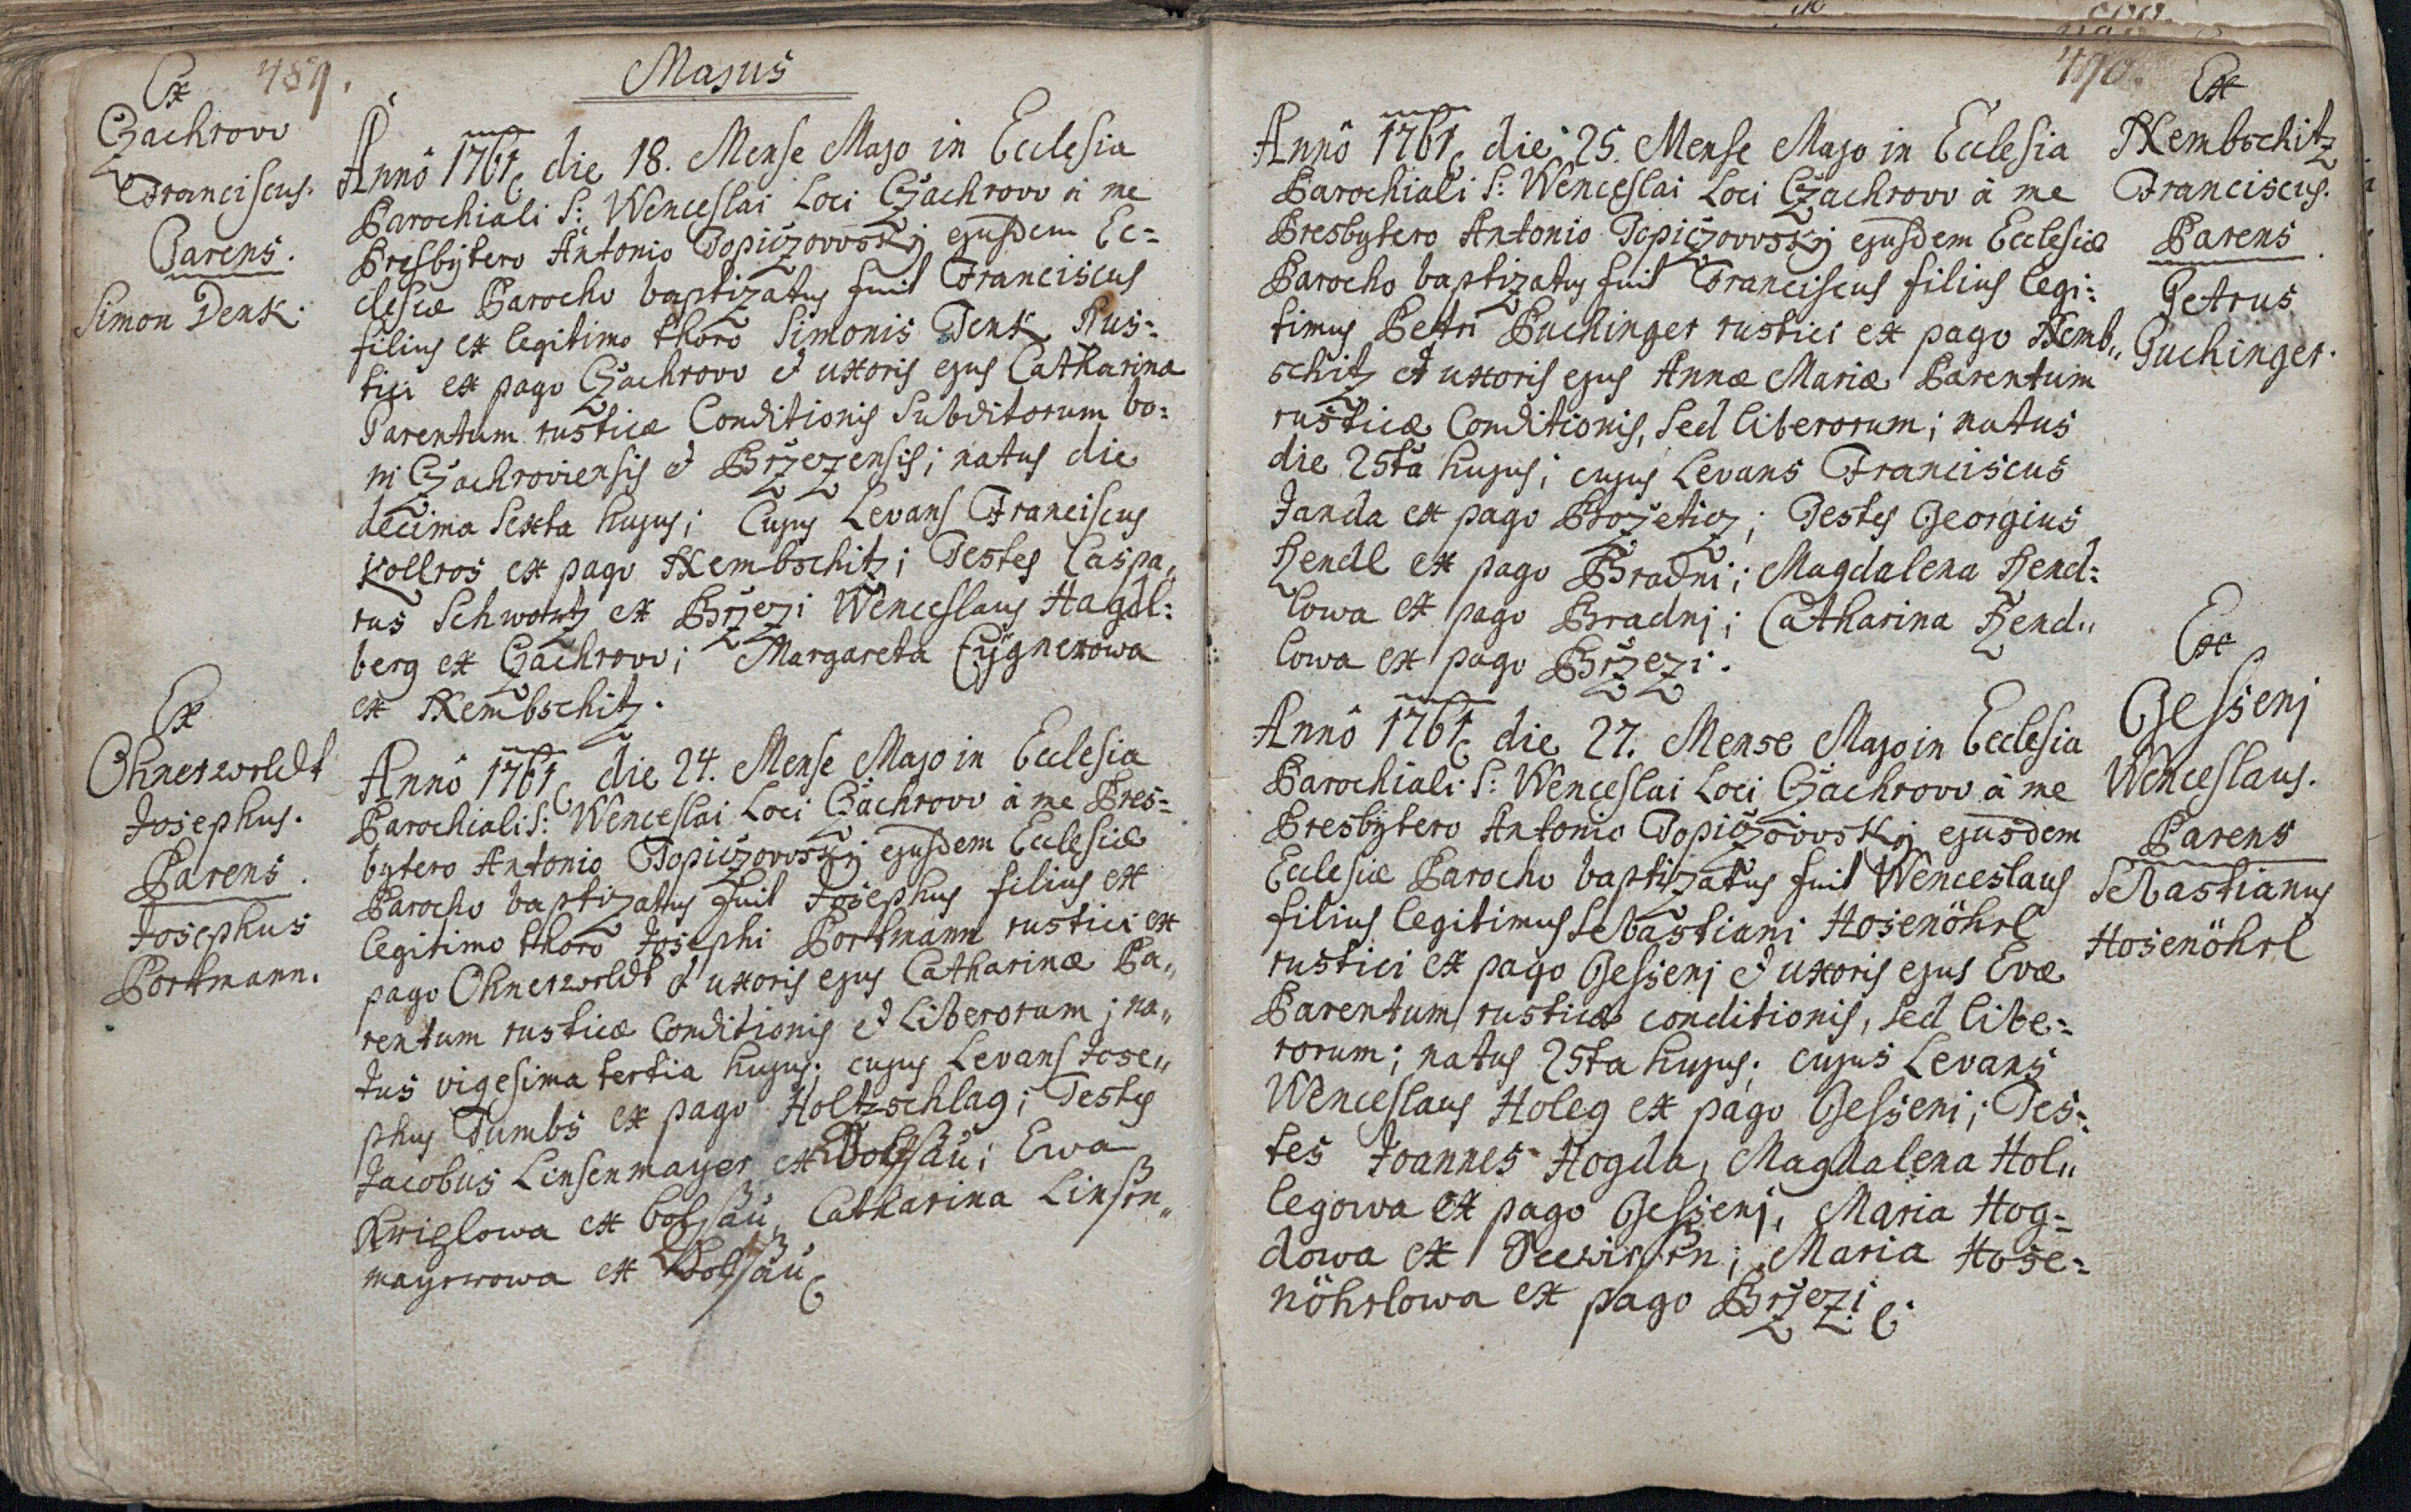 489.
Majus
Ex
Czachrow
Franciscus.
Parens.
Simon Denk.
Annô 1761 die 18. Mense Majo in Ecclesia
Parochiali S: Wenceslai Loci Czachrow à me
Presbÿtero Antonio Topiczowskÿ ejusdem Ec=
clesiæ Parocho baptizatus fuit Franciscus
filius ex legitimo thoro Simonis Denk Rus=
tici ex pago Czachrow et uxoris ejus Catharina
Parentum rusticæ Conditionis Subditorum bo=
ni Czachroviensis et Brzezensis; natus die
decima Sexta hujus; Cujus Levans Franciscus
Kollros ex pago Nembschitz; Testes Caspa,
rus Schwartz ex Brzezi Wenceslaus Hagdl=
berg ex Czachrow; Margareta Cÿgnerowa
ex Nembschitz.
Ex
Ohnerworldt
Josephus.
Parens.
Josephus
Portmann.
Annô 1761 die 24. Mense Majo in Ecclesia
Parochiali S: Wenceslai Loci Czachrow à me Pres=
bytero Antonio Topiczowskÿ ejusdem Ecclesiæ
Parocho baptizatus fuit Josephus filius ex
legitimo thoro Josephi Portmann rustici ex
pago Ohnerworldt et uxoris ejus Catharinæ Pa„
rentum rusticæ Conditionis et Liberorum; na„
tus vigesima tertia hujus; cujus Levans Jose„
phus Tumbs ex pago Holtzschlag; Testes
Jacobus Linsenmayer ex; Ewa
Kriglowa ex Catharina Linsen„
mayerowa ex
490.
Ex
Nembschitz
Franciscus.
Parens.
Petrus
Puchinger.
Annô 1761 die 25. Mense Majo in Ecclesia
Parochiali S: Wenceslai Loci Czachrow à me
Presbytero Antonio Topiczowskÿ ejusdem Ecclesiæ
Parocho baptizatus fuit Franciscus filius legi=
timus Petri Puchinger rustici ex pago Nemb„
schitz et uxoris ejus Annæ Mariæ Parentum
rusticæ Conditionis, sed liberorum; natus
die 25ta hujus; cujus Levans Franciscus
Janda ex pago Brozeticz; Testes Georgius
Hendl ex pago Bradni; Magdalena Hend=
lowa ex pago Bradnj; Catharina Hend„
lowa ex pago Brzezi.
Ex
Gessenj
Wenceslaus.
Parens
Sebastianus
Hosenöhrl
Annô 1761 die 27. Mense Majo in Ecclesia
Parochiali S: Wenceslai Loci Czachrow à me
Presbytero Antonio Topiczowskÿ ejusdem
Ecclesiæ Parocho baptizatus fuit Wenceslaus
filius legitimus Sebastiani Hosenöhrl
rustici ex pago Gessenj et uxoris ejus Evæ
Parentum rusticæ conditionis, sed libe=
rorum; natus 25ta hujus; cujus Levans
Wenceslaus Holeg ex pago Gesseni; Tes=
tes Joannes Hogda, Magdalena Hol„
legowa ex pago Gessenj, Maria Hog=
dowa ex; Maria Hose=
nöhrlowa ex pago Brzezi.